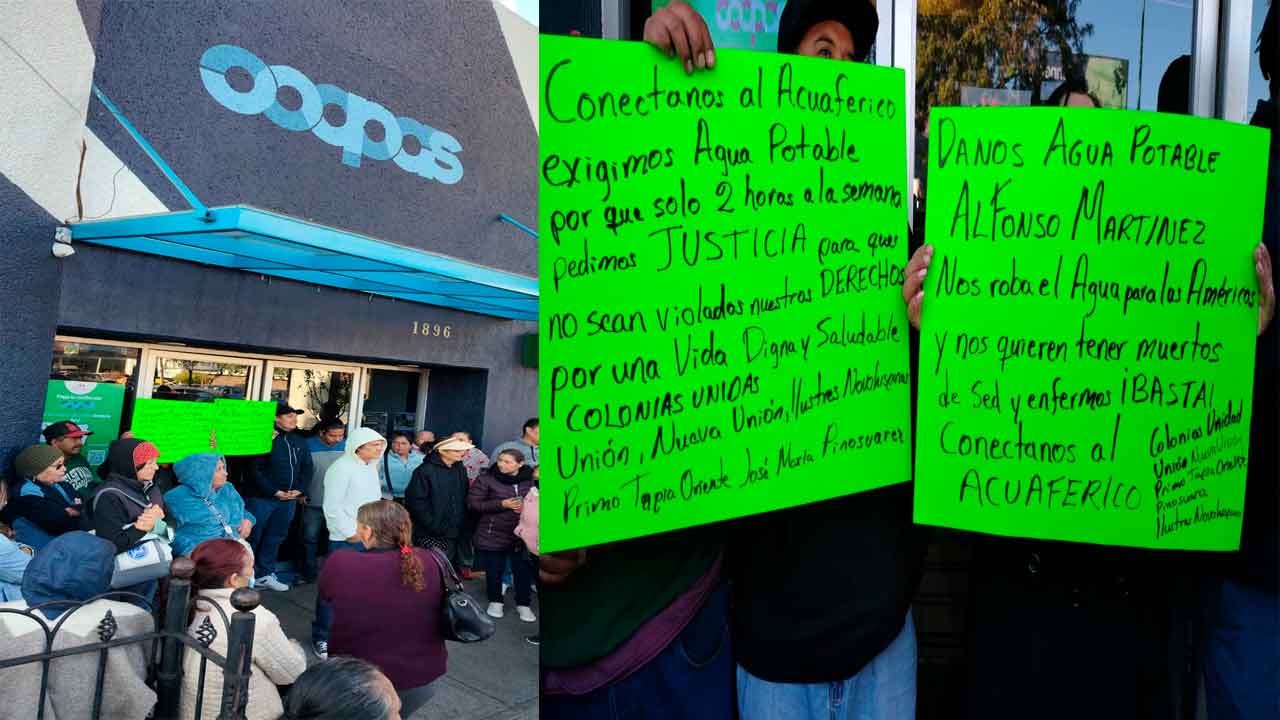 ooapas
1896
Conectanos al Acuaferico
exigimos Agua Potable
por que solo 2 horas a la semana
pedimos JUSTICIA para que
no sean violados nuestros DERECHOS
por una Vida Digna y Saludable
COLONIAS UNIDAS
Unión, Nueva Unión, Ilustres Novohispanos
Primo Tapia Oriente José María Pinosuarez
DANOS AGUA POTABLE
ALFONSO MARTINEZ
Nos roba el Agua para las Américas
y nos quieren tener muertos
de Sed y enfermos ¡BASTA!
Conectanos al
ACUAFERICO
Colonias Unidad
Unión Nueva Unión
Primo Tapia Oriente
Pinosuara
Ilustres Novohispanos